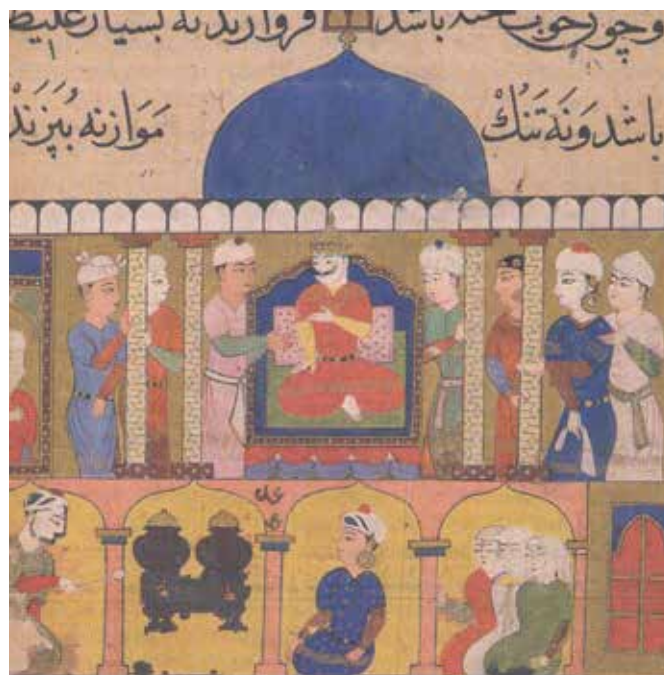 وچون خوب باشد فروارند نه بسیار غلیظ
باشد وَنَه تَنُكْ مَوازنه بُپَزَند